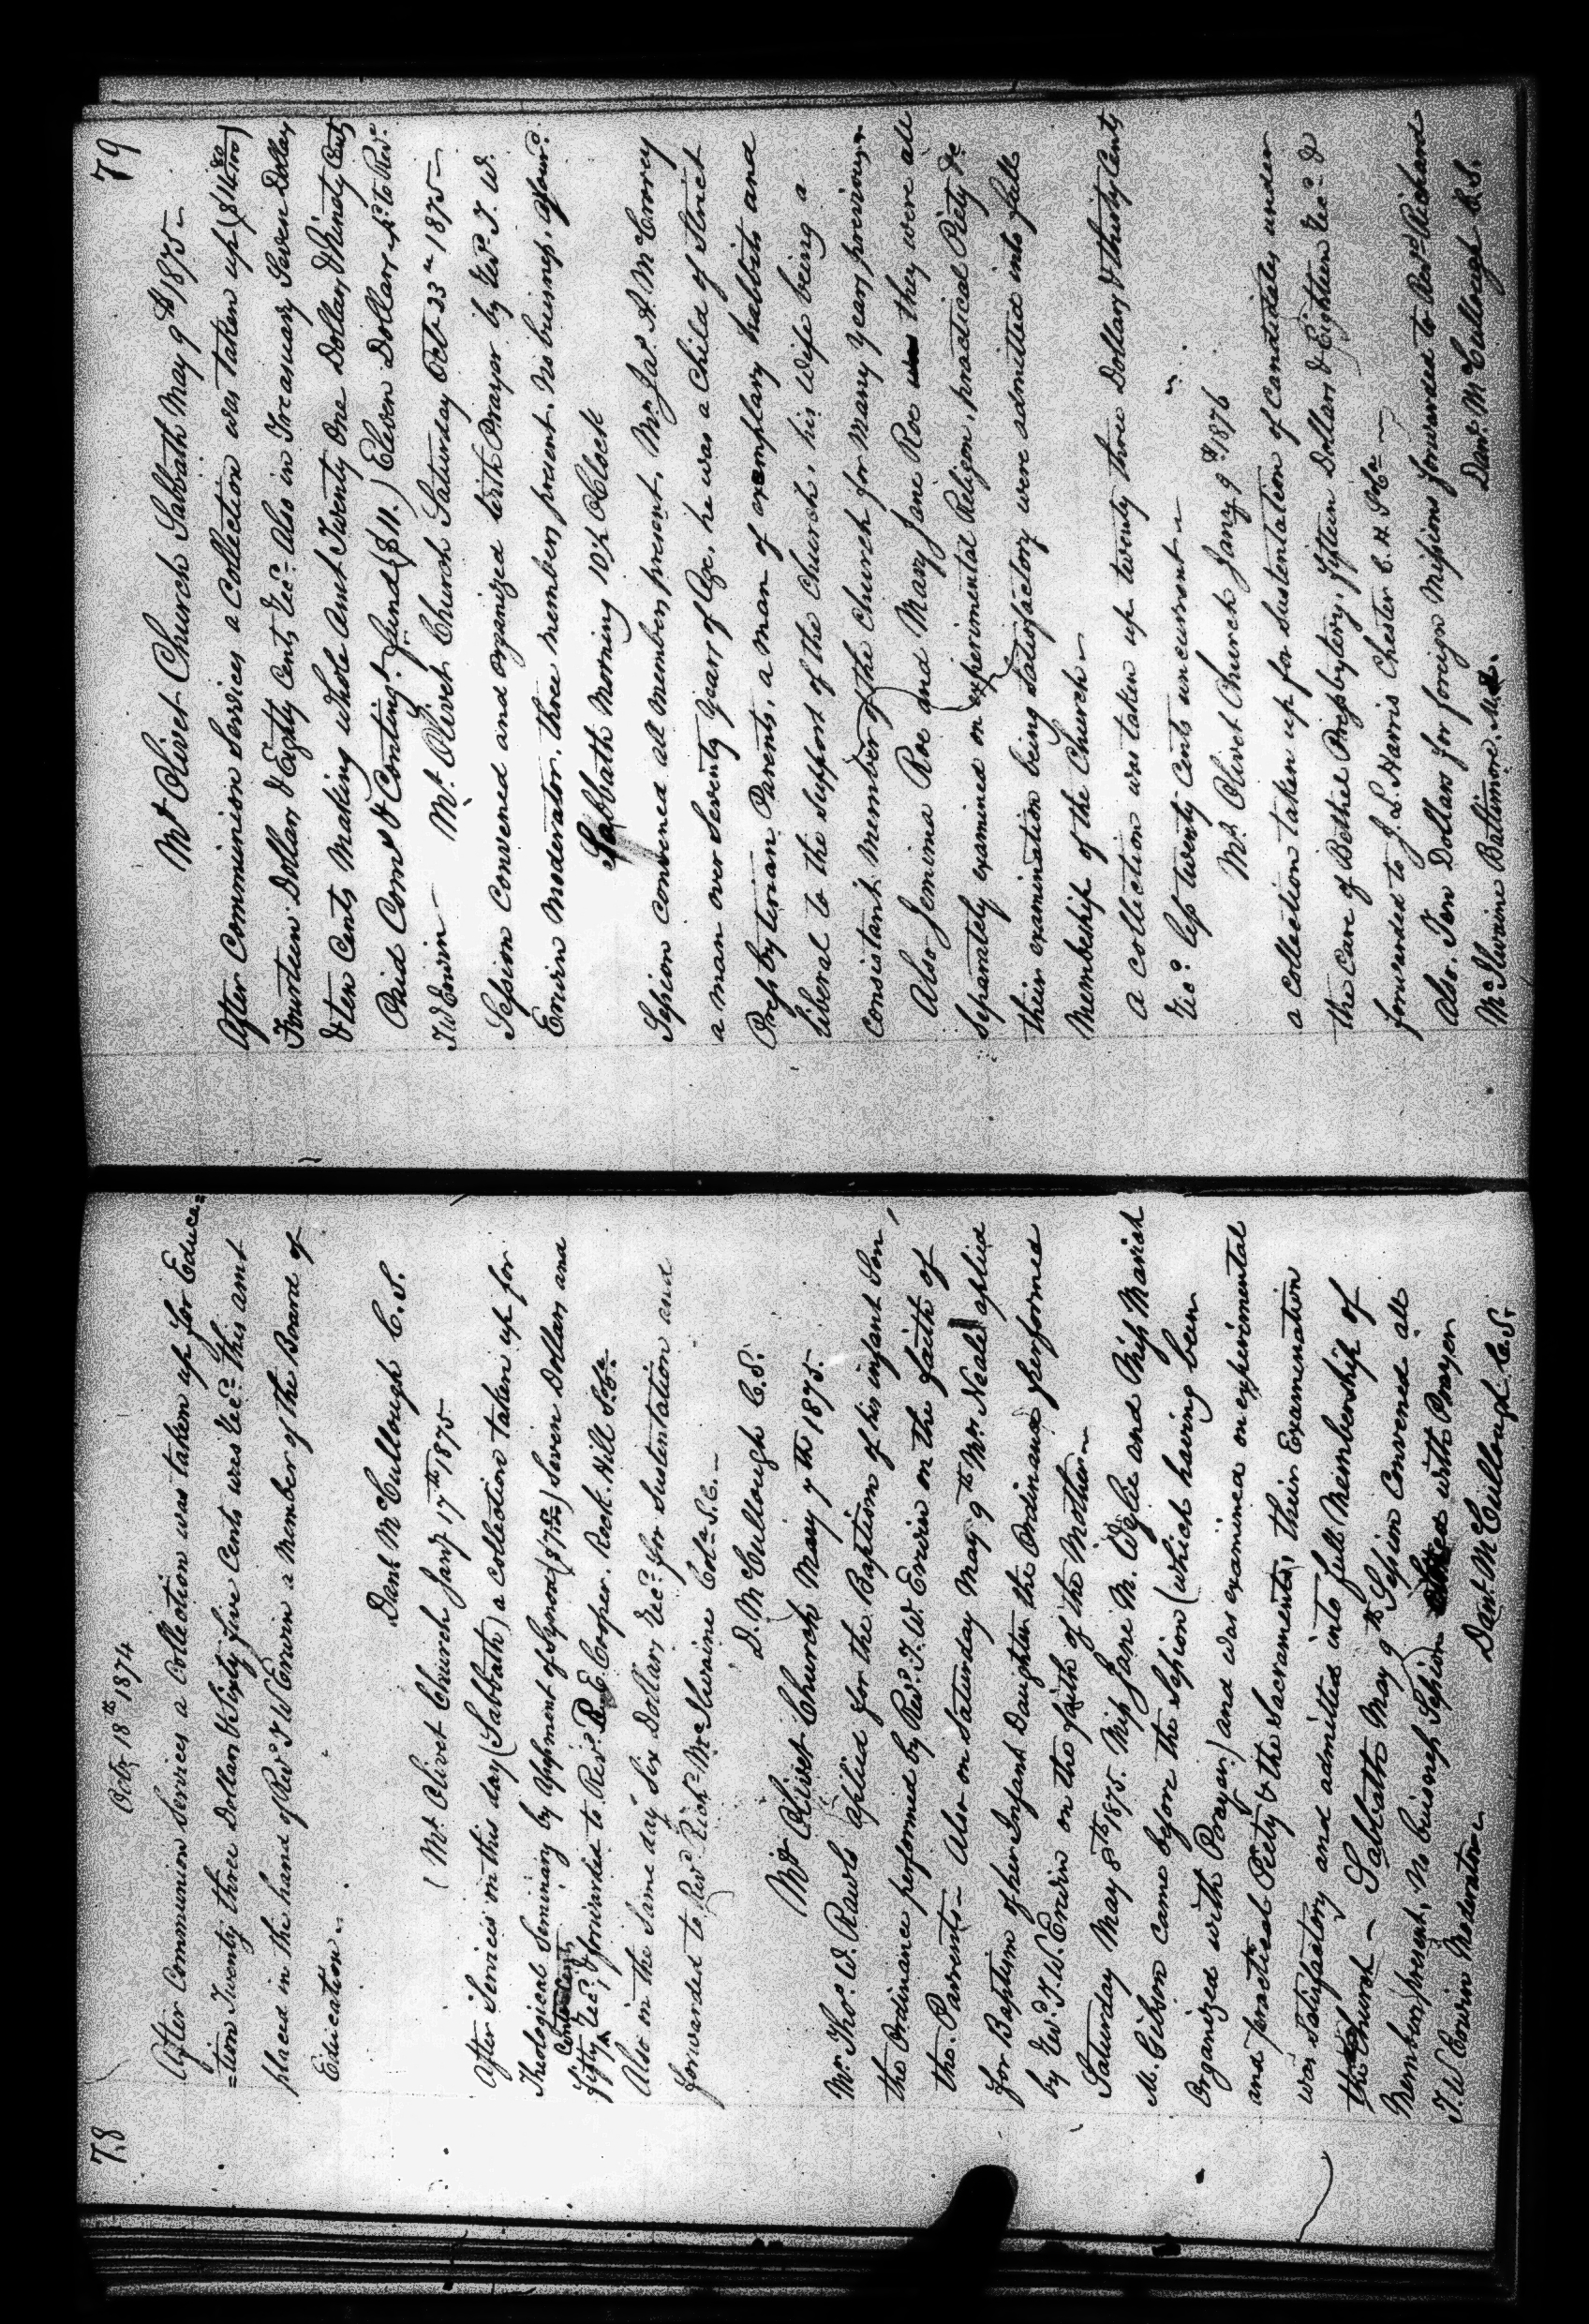 78
Octr 18th 1874
After Communion Services a Collection was taken up for Educa=
=tion Twenty three Dollars & Sixty five Cents wes &ec= This amt
placed in the hand of Revd T W Erwin a Member of the Board of
Education ~
Danl McCullough C. S.
Mt Olivet Church Jany 17th 1875
After Services on this day (Sabbath) a Collection taken up for
Theological Seminary by appment of Synod ($7.50) Seven Dollars and
fifty Cents &ec; forwarded to Revd E Cooper. Rock. Hill So. Ca.
Also on the same day Six Dollars &ec= for Sustentation and
forwarded to Revd Richd McIlwaine Cola S.C. ~
D. McCullough C. S.
Mt Olivet Church May 7th 1875.
Mr Thos W. Rawls aplied for the Baptism of his infant Son,
the Ordinance performed by Revd T. W. Erwin on the faith of
the Parrents ~ Also on Saturday May 9th Mrs Neal aplied
for Baptism of her Infant Daughter the Ordinance performed
by Revd T. W. Erwin on the faith of the Mother ~
Saturday May 8th 1875. Miss Jane M. Wylie and Miss Mariah
M. Gibson came before the session (which having been
Organized with Prayer) and was examined on experimental
and practical Piety & the Sacraments, their Examination
was Satisfactory and admitted into full Membership of
the Church ~ Sabbath May 9th Session Convened all
Members present, No business Session Closed with Prayer
T. W Erwin Moderator ~
Danl McCullough C. S.
79
Mt Olivet Church Sabbath May 9th 1875 ~
After Communion Services a Collection was taken up ($14.80/100)
Fourteen Dollars & Eighty Cents &ec= Also in Treasuary Seven Dollars
& ten Cents Making whole Amt Twenty One Dollars & Ninety Cents
Paid Comd & Contingt fund ($11.) Eleven Dollars pr to Revd
T W Erwin ~ Mt Olivet Church Saturday Oct. 23rd 1875 ~
Session Convened and organized with Prayer by Revd T. W.
Erwin Moderator, three members present, No business, ajournd.
Sabbath Morning 10½ OClock
Session convened all members present, Mr Jas A. McCrorey
a man over Seventy years of Age, he was a Child of Strict
Presbyterian Parents, a man of exemplary habbits and
liberal to the support of the Church, his wife being a
consistant Member of the Church for Many years previous,
Also Jemima Roe and Mary Jane Roe they were all
separately examined on experimental Religon, practical Piety &c
their examination being satisfactory were admitted into full
Membeship of the Church ~
A Collection was taken up twenty three Dollars & thirty Cents
&ec= less twenty Cents uncurrent ~
Mt Olivet Church Jany 9th 1876
a Collection taken up for Sustentation of Candidates under
the Care of Bethel Presbytery, fifteen Dollars & Eighteen &ec= &
forwarded to J. L. Harris Chester C. H. So Ca ~
Also. Ten Dollars for foreign Missions forwarded to Revd Richard
McIlwaine Baltimore, Md.
Danl McCullough C. S.